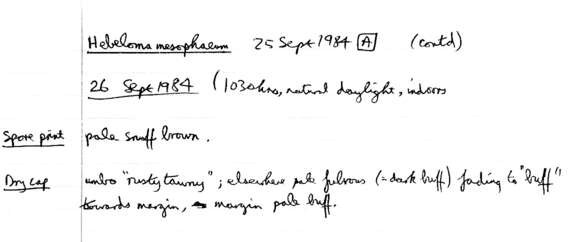 Hebeloma mesophaeum 25 Sept 1984 A (contd)
26 Sept 1984 (1030hrs, natural daylight, indoors
Spore print pale snuff brown.
Dry cap umbo "rusty tawny"; elsewhere pale fulvous (= dark buff) fading to "buff"
towards margin, margin pale buff.